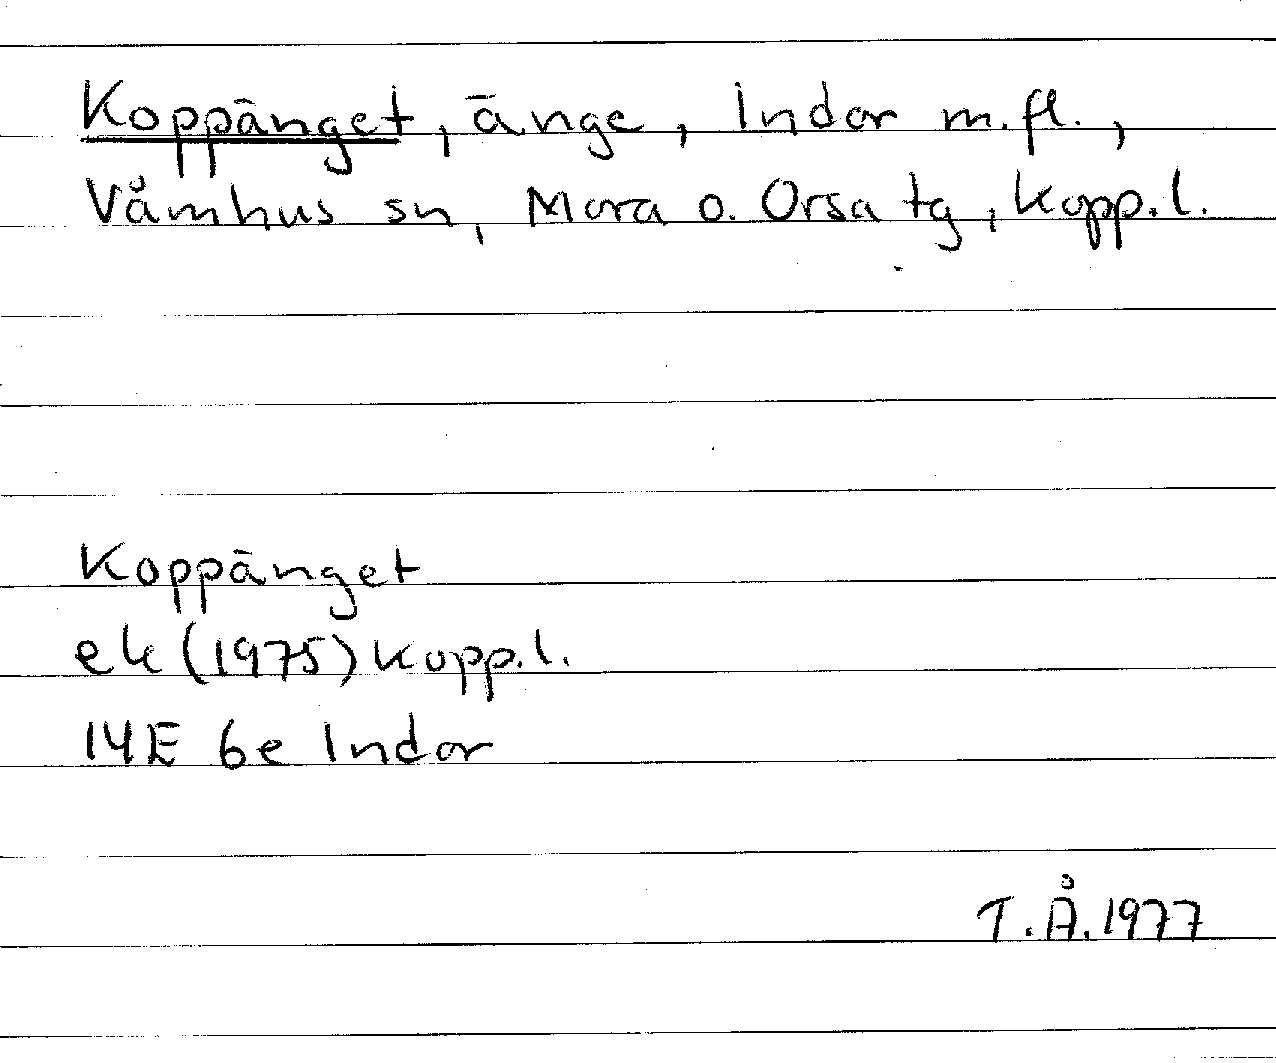 Koppänget, änge, Indor m.fl.,
Våmhus sn, Mora o. Orsa tg, Kopp.l.
Koppänget
ek (1975) Kopp.l.
14E 6e Indor
T.Å. 1977